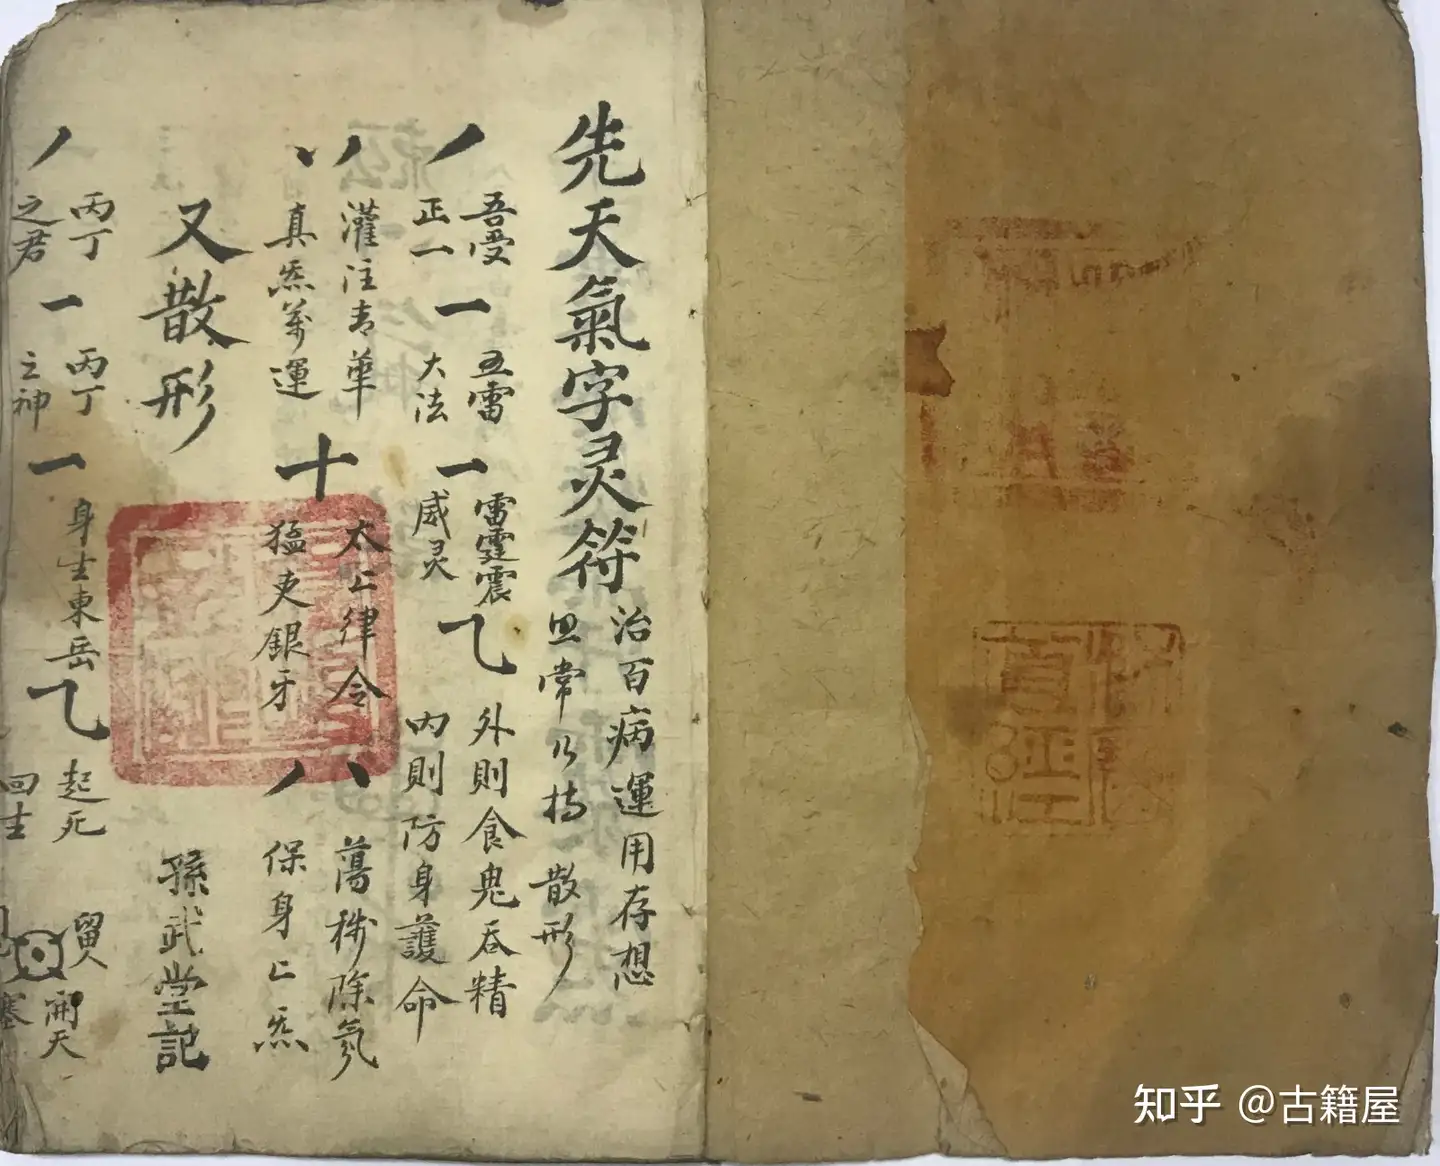 先天氣字灵符
治百病運用存想
思常乃持散形
丿
吾受
正一
一
五雷
大法
一
雷霆震
威灵
乁
外則食鬼吞精
內則防身護命
丷
灌注青華
真炁萬運
十
太上律令
猛吏銀牙
八
蕩穢除氛
保身上炁
又散形
孫武堂記
丿
丙丁
之君
一
丙丁
之神
一
身生東岳
乁
起死
回生
開天
知乎 @古籍屋